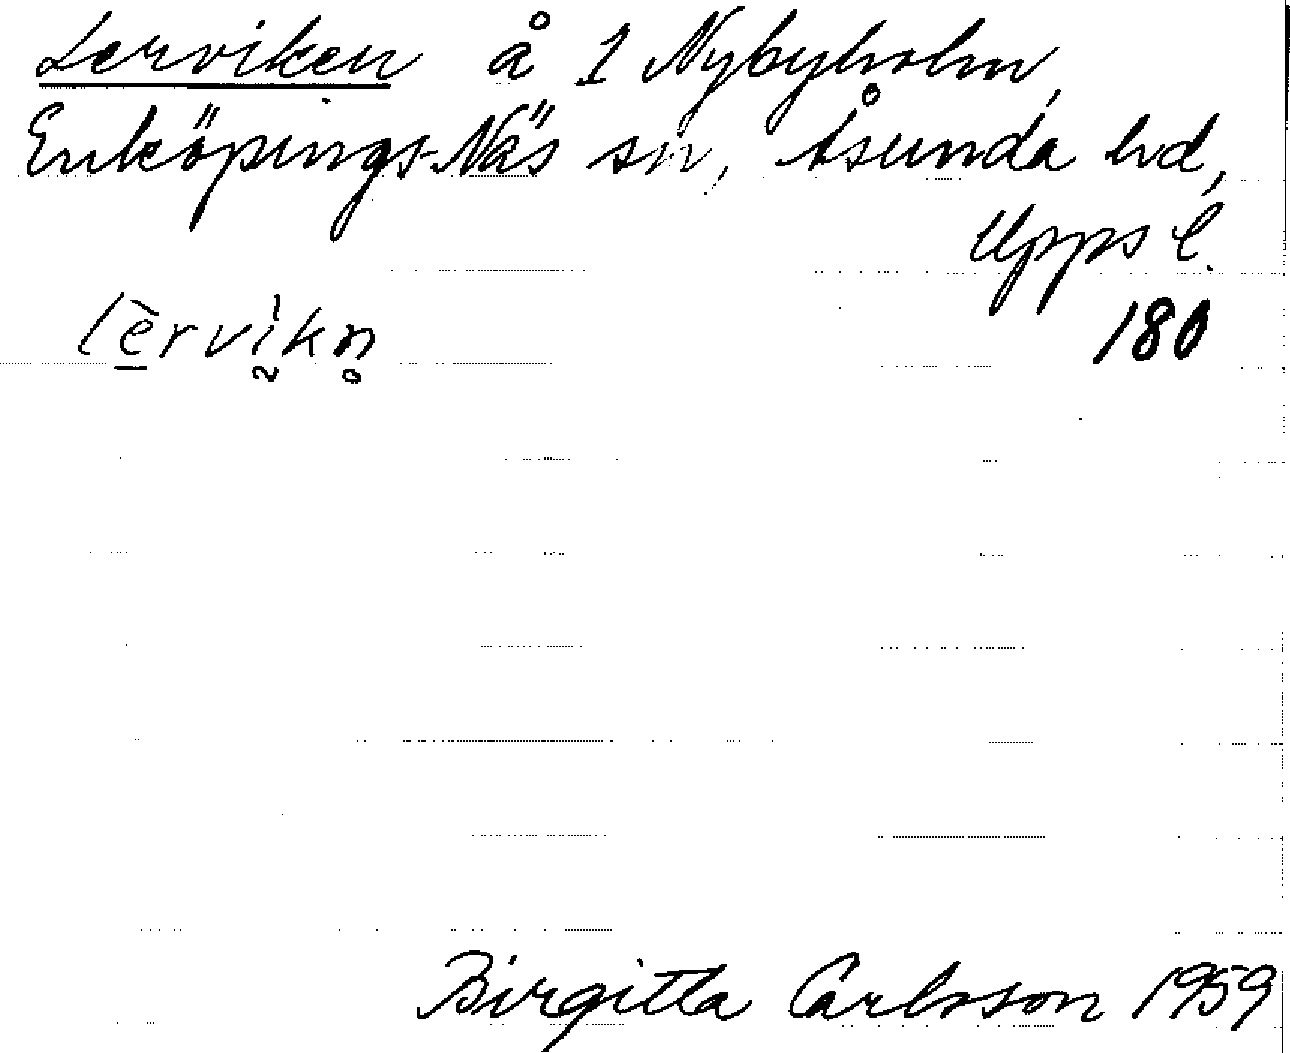 Lerviken å 1 Nybyholm,
Enköpings-Näs sn, Åsunda hd,
Upps l.
lè̱rvìkn̥
180
Birgitta Carlsson 1959